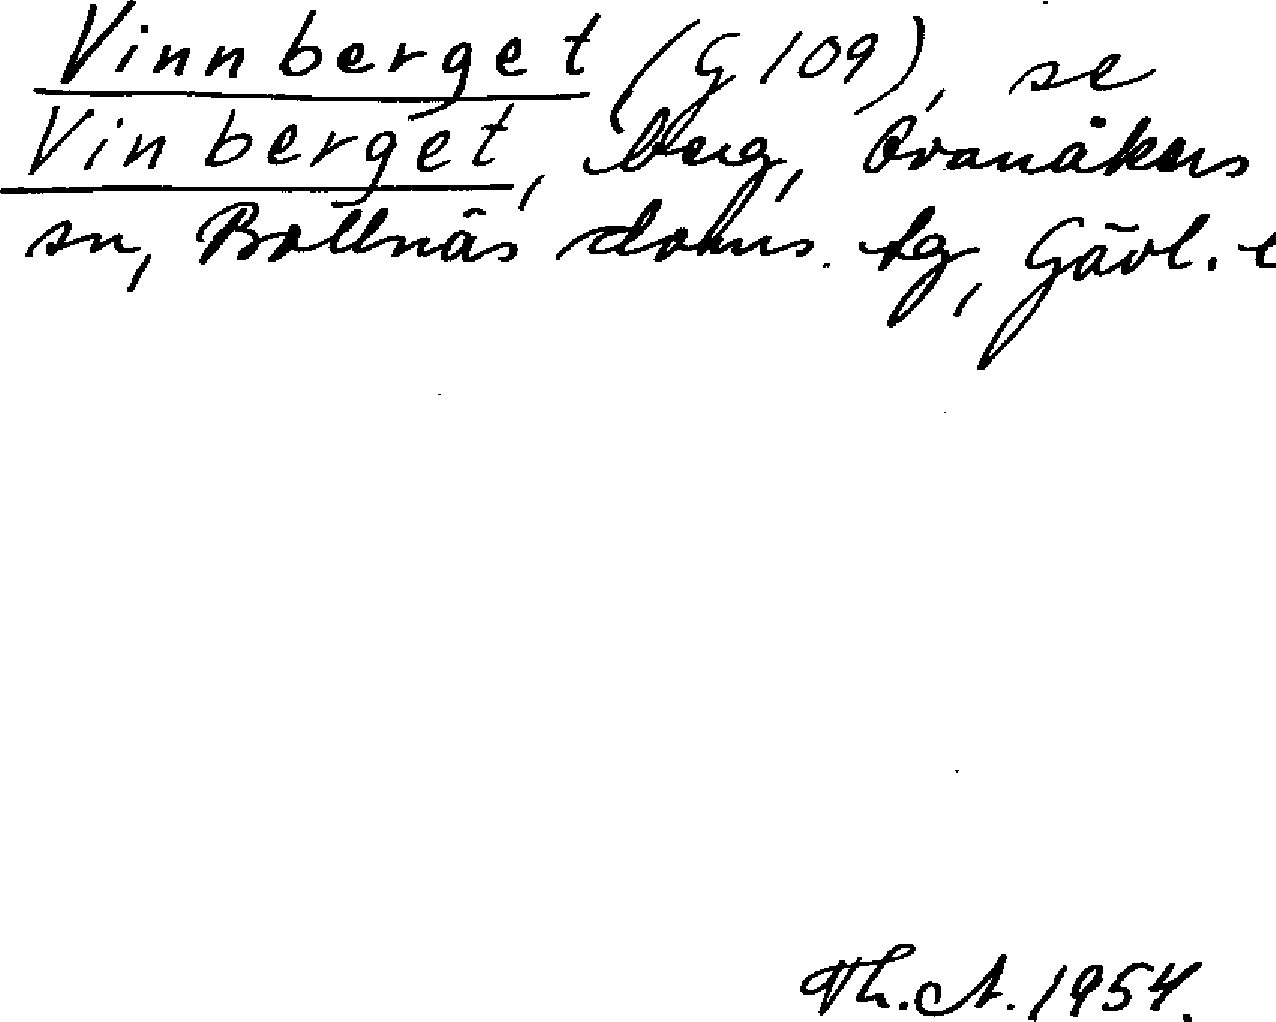 Vinnberget (G 109), se
Vinberget, berg, Ovanåkers
sn, Bollnäs doms. tg, Gävl. l
Th. A. 1954.